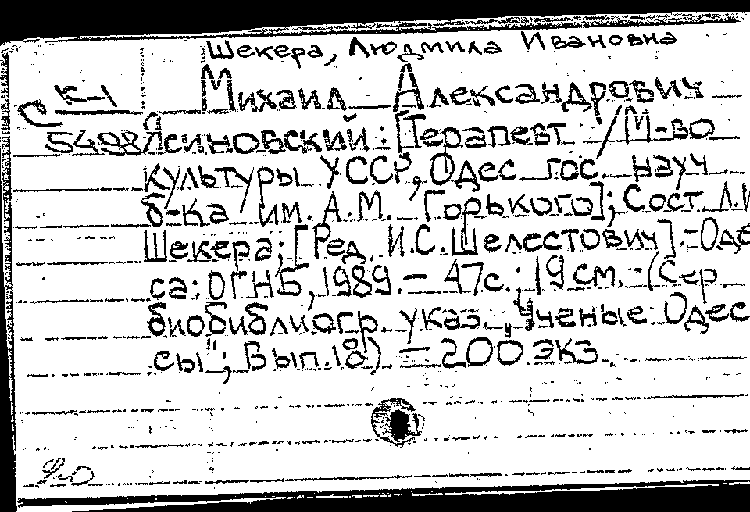 Шекера, Людмила Ивановна
К-1
Михаил Александрович
С
5498 Ясиновский: [Терапевт / М-во
культуры УССР, Одес. гос. науч.
б-ка им. А.М. Горького]; Сост. Л.И
Шекера; [Ред. И.С. Шелестович].-Оде
са: ОГНБ, 1989.- 47с.; 19 см.-(Сер.
биобиблиогр. указ. "Ученые Одес
сы"; Вып.18) - 200 экз.